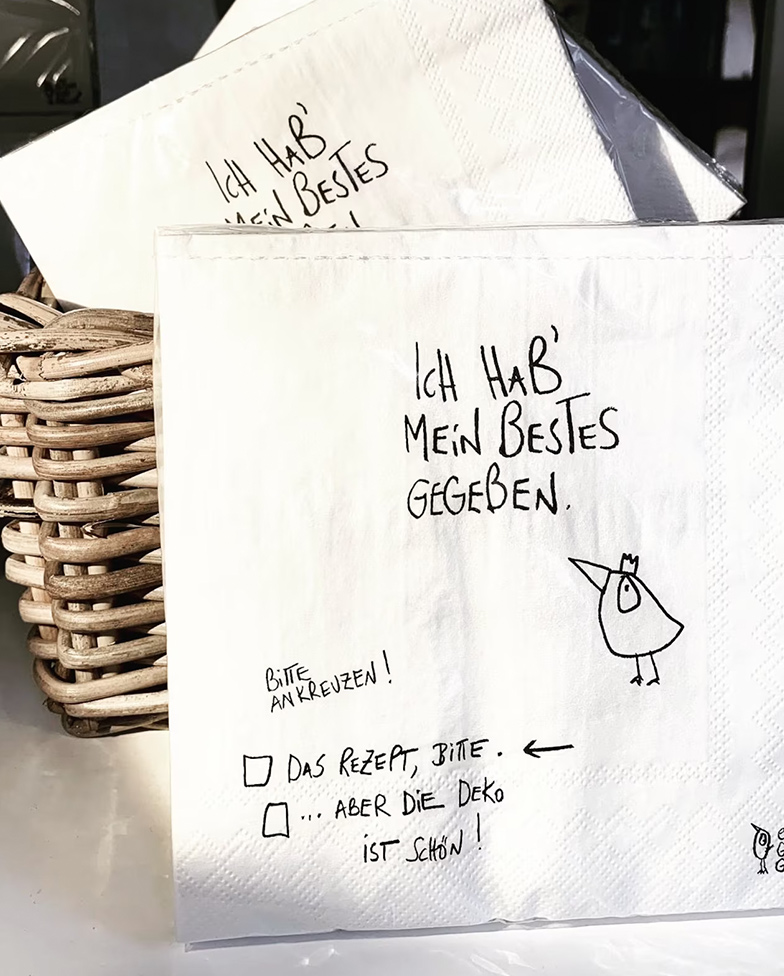 ICH HAB'
MEIN BESTES
ICH HAB'
MEIN BESTES
GEGEBEN.
BITTE
ANKREUZEN!
DAS REZEPT, BITTE.
... ABER DIE DEKO
IST SCHÖN!